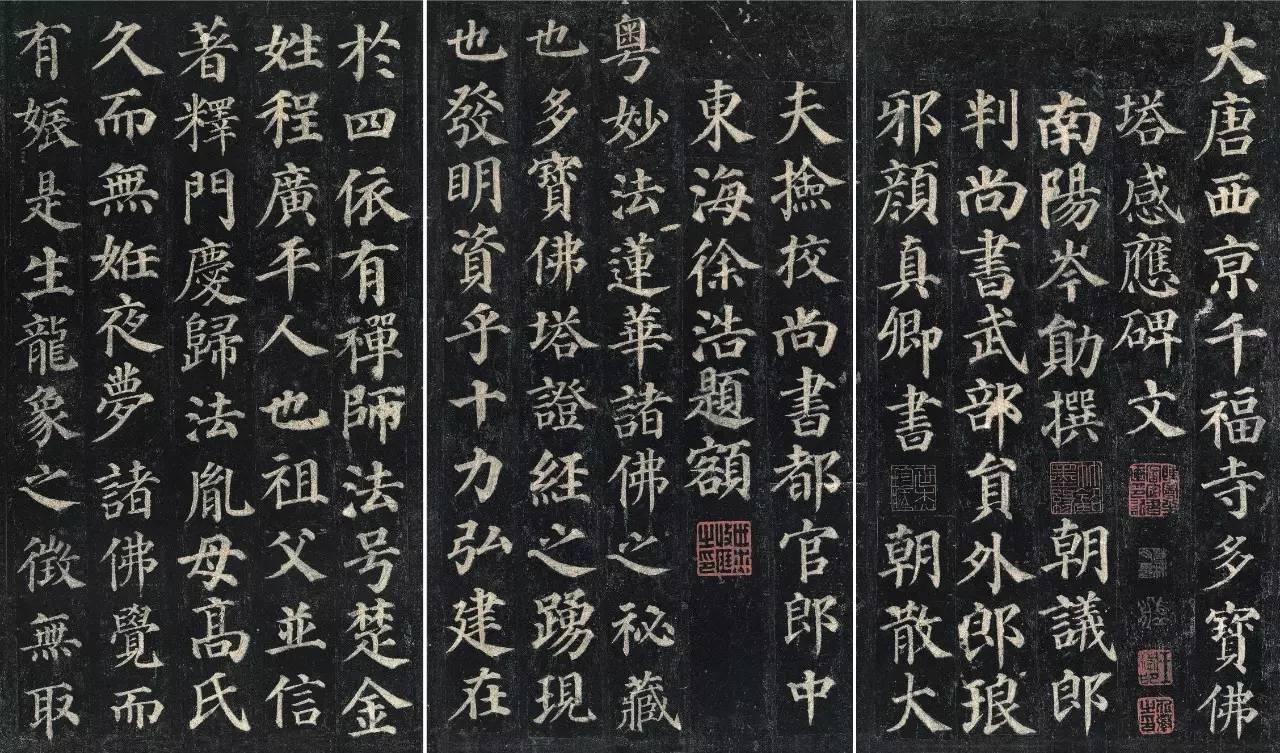 大唐西亰千福寺多寳佛
塔感應碑文
南陽岑勛撰 朝議郎
判尚書武部貟外郎琅
邪顔真卿書 朝散大
夫撿挍尚書都官郎中
東海徐浩題額
粤妙法蓮華諸佛之祕藏
也多寳佛塔證經之踴現
也發明資乎十力弘建在
於四依有禪師法号楚金
姓程廣平人也祖父並信
著釋門慶歸法胤母髙氏
久而無姙夜夢諸佛覺而
有娠是生龍象之徵無取